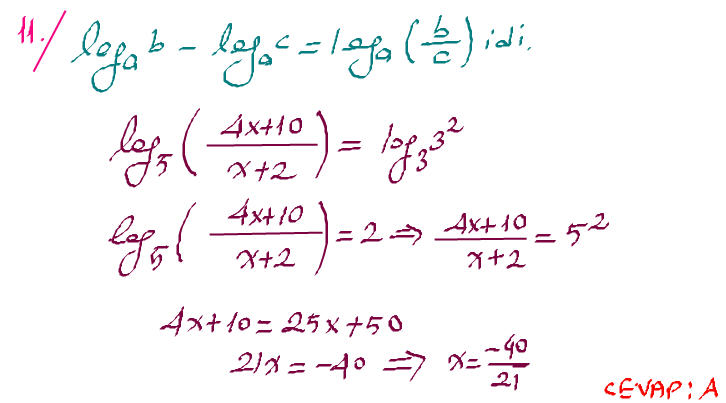 11./ log_a b - log_a c = log_a (b/c) idi.
log_5 ((4x+10)/(x+2)) = log_3 3^2
log_5 ((4x+10)/(x+2)) = 2 ⇒ (4x+10)/(x+2) = 5^2
4x+10 = 25x+50
21x = -40 ⇒ x = -40/21
CEVAP: A